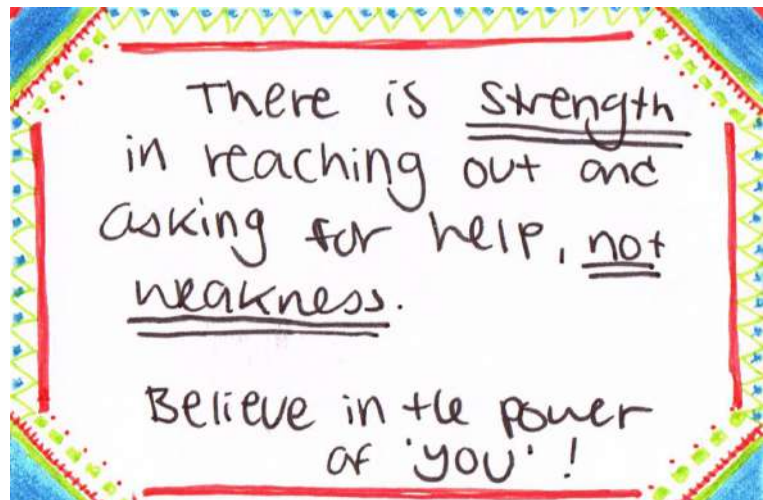 There is strength
in reaching out and
asking for help, not
weakness.
Believe in the power
of 'you'!